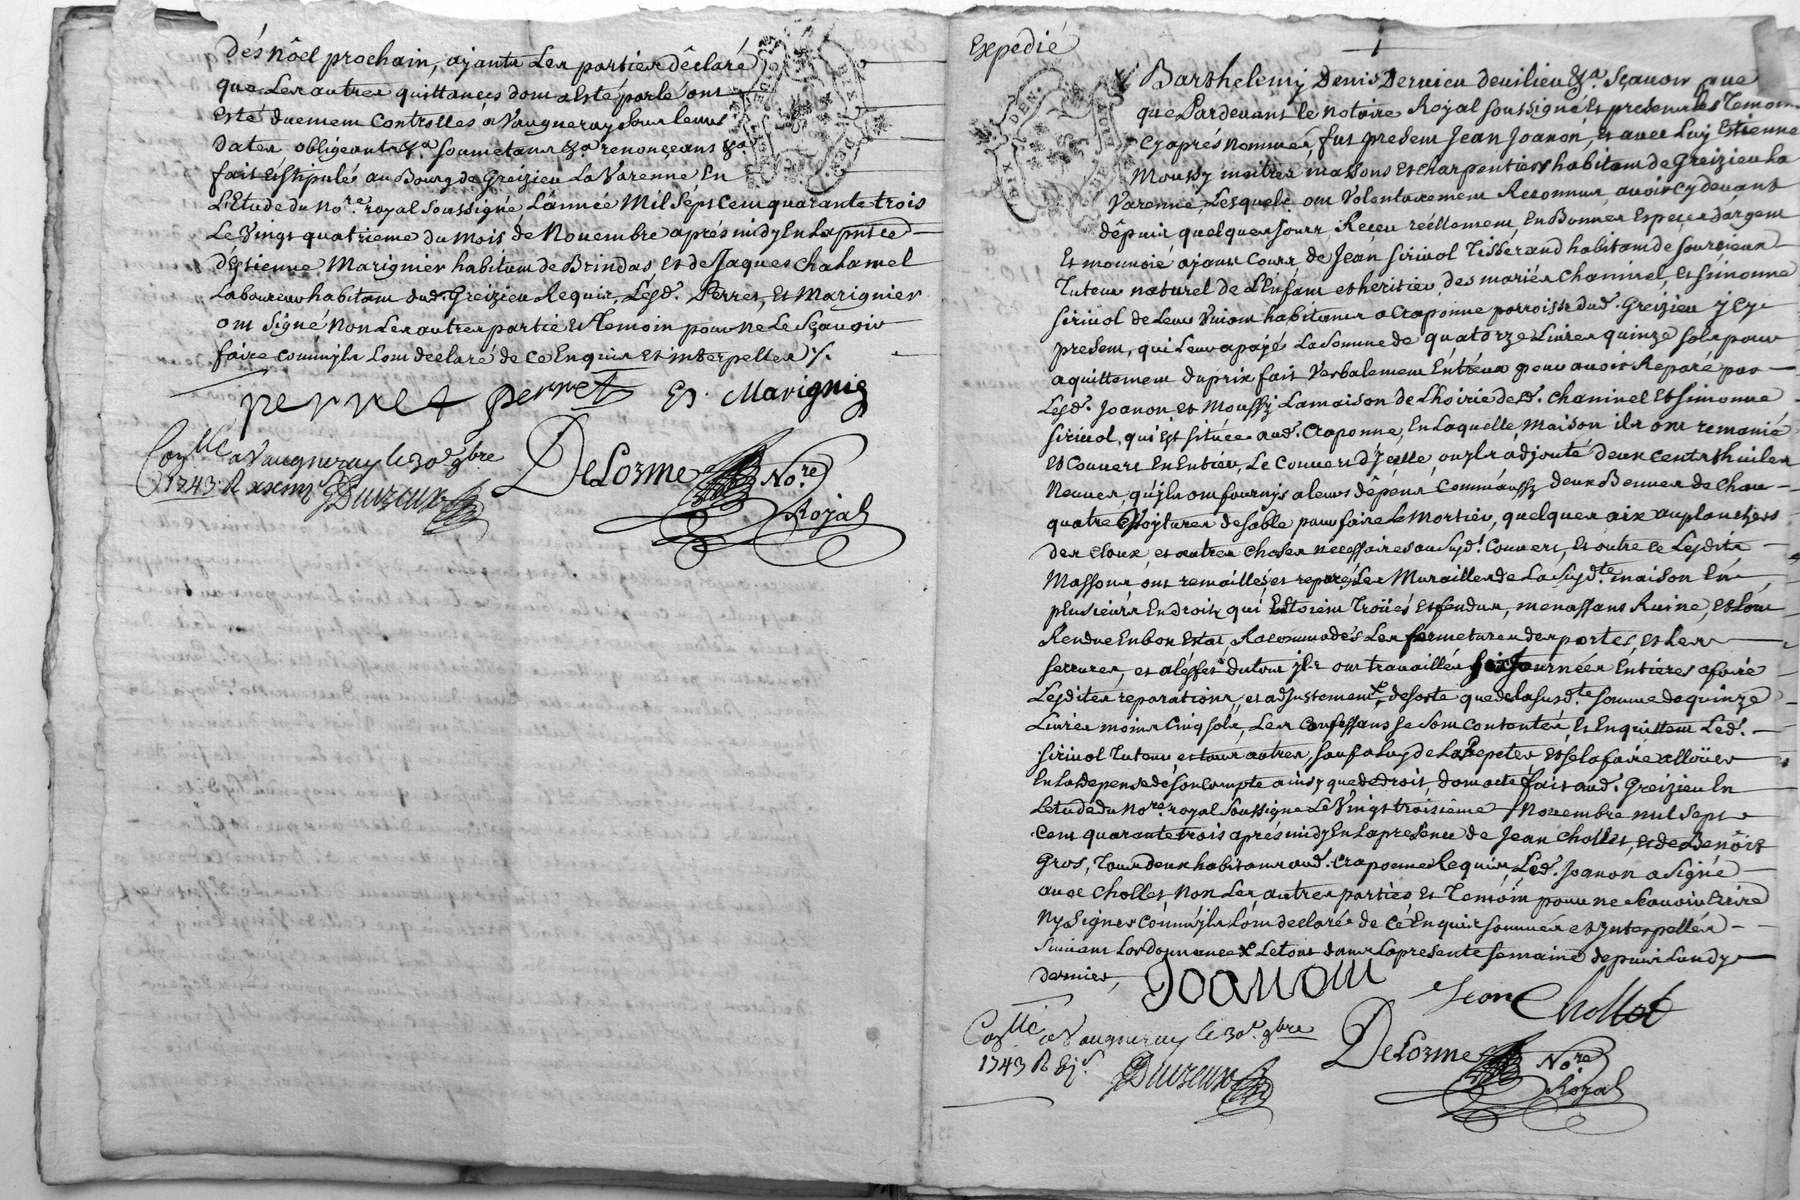 dés nôel prochain, ayants Les parties dêclaré
que Les autres quittances dont a Esté parlé ont
Esté duement Controllés a Vaugneray Sous leurs
dates obligeants &a. soumetans &a renonçans &a
fait et stipulée au Bourg de Greizieu La Varenne En
L'Etude du Nore. royal soussigné L'année Mil Sept Cent quarante trois
Le Vingt quatrieme du mois de Novembre aprés midy En La pntce
d'Estienne Marignier habitant de Brindas et de Jaques Chalamel
Laboureur habitant dud. Greizieu Requis, Lesd. Perret, Et Marignier
ont signé Non Les autres partie et temoin pour ne Le Sçavoir
faire Comm'ils L'ont declaré de Ce Enquis et interpellés ./.
perret perret E. Marignie
Conlle a Vaugneray le 30e 9bre
1743 R
DeLorme Nore
Royal
Expedié
Barthelemy Denis Dervieu devilieu &a. Sçavoir
que Pardevant le Notaire Royal soussigné Et presents les Temoins
Cy aprés nommés, fut present Jean Joanon, et avec Luy Estienne
Moussy maitres massons et charpentiers habitant de Greizieu La
Varenne, Lesquels ont Volontairement Reconnus avoir cy devant
dêpuis quelques jours Reçeu réellement En Bonnes Espeçes d'argent
Et monnoié ayant Cours de Jean Sirivol Tisserand habitant de sourcieux
Tuteur naturel de L'Enfant et heritier des mariés Chaminel, et simonne
Sirivol de Leur Vivant habitants a Craponne parroisse dud. Greizieu jcy
present, qui Leur a payé La somme de quatorze Livres quinze sols pour
aquittement du prix fait Verbalement Entreux pour avoir Reparé par
Lesd. Joanon et Moussy La maison de L'hoirie desd. Chaminel et simonne
Sirivol, qui Est située aud. Craponne, En Laquelle maison ils ont remanié
Et Couvert En Entier, Le Couvert d'jcelle, ou jls adjouté deux cents thuiles
Neuves qu'jls ont fournis a leurs dêpens Comm'aussy deux Bennes de chau
quatre Voytures de sable pour faire Le Mortier, quelques aix au planches
des cloux et autres choses neccessaires au sud. Couvert, Et outre ce Lesdits
Massons ont remaillés et reparés Les Murailles de La susdte. maison En
plusieurs Endroits qui Estoient Troüés et fendus, menassans Ruine, et L'ont
Rendue En bon Estat, Racommodés Les fermetures des portes, et Les
serrures, et a L'effet du tout jls ont travaillés six Journées Entieres a faire
Lesdites reparations, et adjustements, de sorte que de la susdte. somme de quinze
Livres moins Cinq sols, Les Confessans Se sont Contentés, Et En quittent Led.
Sirivol Tuteur, et tous autres, sauf a Luy de La Repeter, et se La faire allöuer
En La depense de son Compte ainsy que de droit, dont acte fait aud. Greizieu En
L'etude du Nore. royal Soussigné Le Vingt troisiéme Novembre mil sept
Cent quarante trois aprés midy En La presence de Jean Chollet, et de Benoist
Gros, Tous deux habitans aud. Craponne Requis, Led. Joanon a Signé
avec Chollet, Non Les autres parties et Temoin pour ne sçavoir Ecrire
Ny Signer Comm'jls L'ont declarés de Cé Enquis sommés et jnterpellés
Suivant L'ordonnance & Le tout dans La presente semaine depuis Lundy
dernier,
Joanon
Jean Chollet
Conlle a Vaugneray le 30e. 9bre
1743 R
DeLorme Nore
Royal